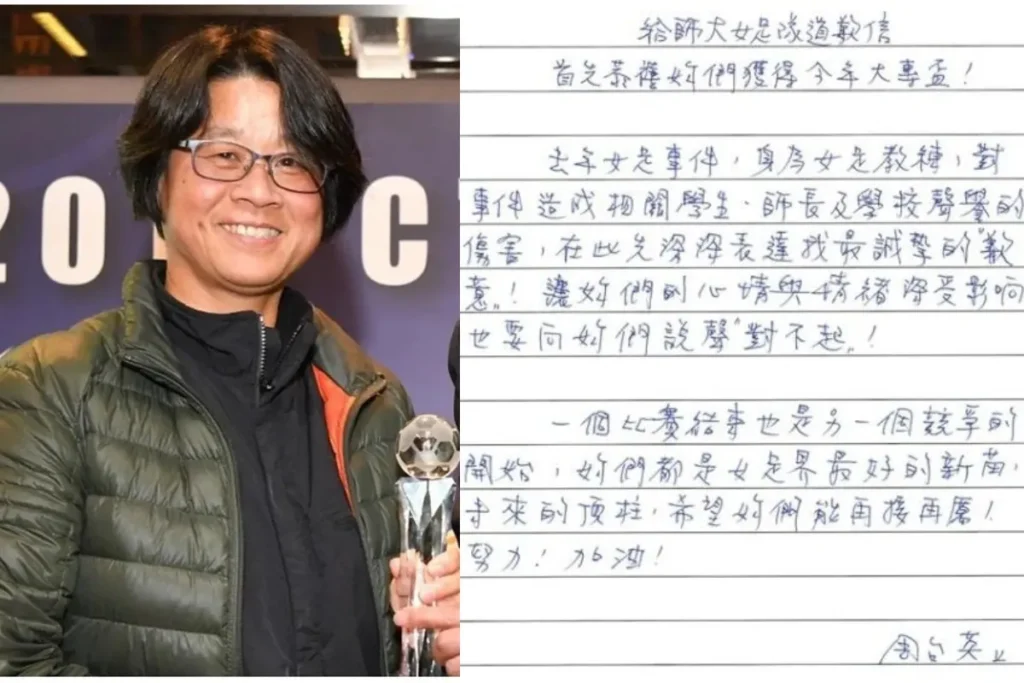 201 C
給師大女足隊道歉信
首先恭禧妳們獲得今年大專盃！
去年女足事件，身為女足教練，對
事件造成相關學生、師長及學校聲譽的
傷害，在此先深深表達我最誠摯的"歉
意"！讓妳們的心情與情緒深受影响
也要向妳們說聲"對不起"！
一個比賽結束也是另一個競爭的
開始，妳們都是女足界最好的新苗，
未來的頂柱，希望妳們能再接再厲！
努力！加油！
周台英